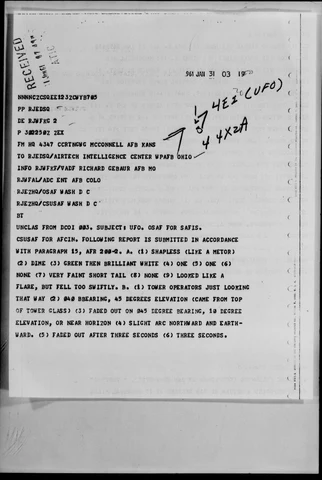 RECEIVED
961 JAN 31 03 19
4EI (UFO)
4 4X2A
PP RJEDSQ
DE RJWFXC 2
FM HQ 4347 CCRTNGWG MCCONNELL AFB KANS
TO RJEDSQ/AIRTECH INTELLIGENCE CENTER WPAFB OHIO
INFO RJWFKF/VADF RICHARD GEBAUR AFB MO
RJWFAL/ADC ENT AFB COLO
RJEZHQ/OSAF WASH D C
RJEZHQ/CSUSAF WASH D C
BT
UNCLAS FROM DCOI 003. SUBJECT: UFO. OSAF FOR SAFIS.
CSUSAF FOR AFCIN. FOLLOWING REPORT IS SUBMITTED IN ACCORDANCE
WITH PARAGRAPH 15, AFR 200-2. A. (1) SHAPLESS (LIKE A METOR)
(2) DIME (3) GREEN THEN BRILLIANT WHITE (4) ONE (5) ONE (6)
NONE (7) VERY FAINT SHORT TAIL (8) NONE (9) LOOKED LIKE A
FLARE, BUT FELL TOO SWIFTLY. B. (1) TOWER OPERATORS JUST LOOKING
THAT WAY (2) 040 BEARING, 45 DEGREES ELEVATION (CAME FROM TOP
OF TOWER GLASS) (3) FADED OUT ON 045 DEGREE BEARING, 10 DEGREE
ELEVATION, OR NEAR HORIZON (4) SLIGHT ARC NORTHWARD AND EARTH-
WARD. (5) FADED OUT AFTER THREE SECONDS (6) THREE SECONDS.